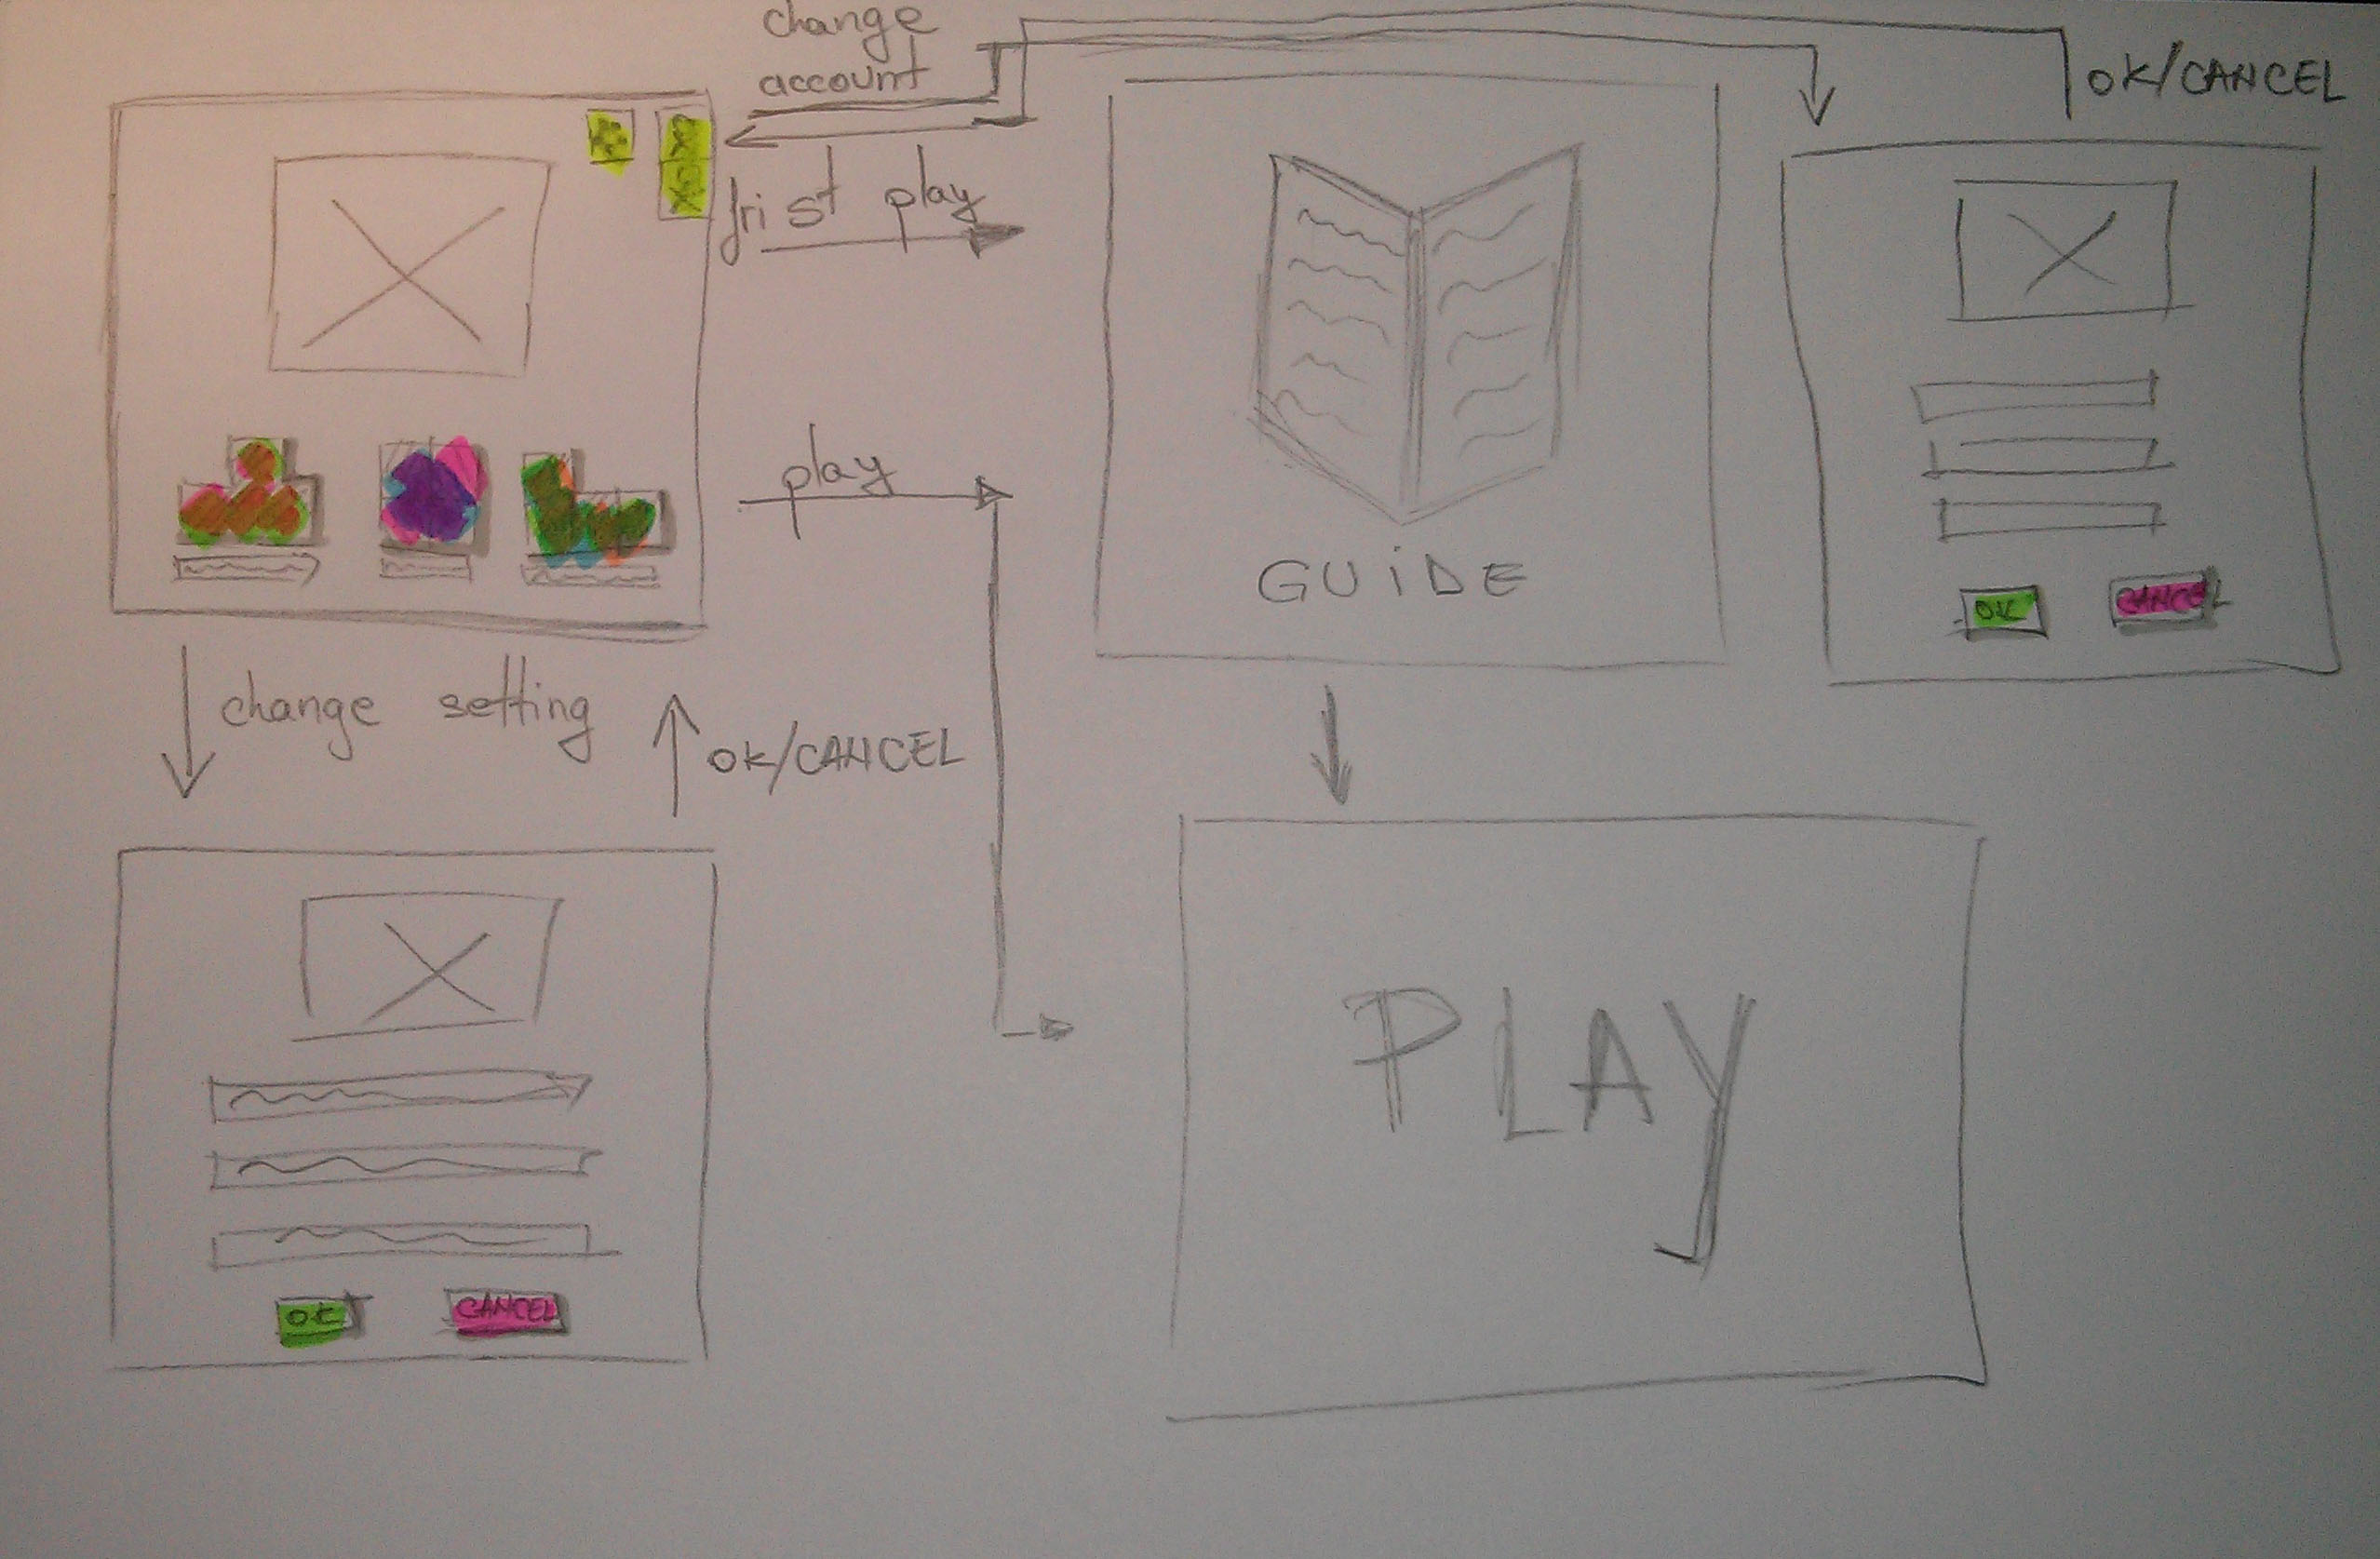 change
account
OK/CANCEL
frist play
play
GUiDE
OK
CANCEL
change setting
OK/CANCEL
PLAY
OK
CANCEL